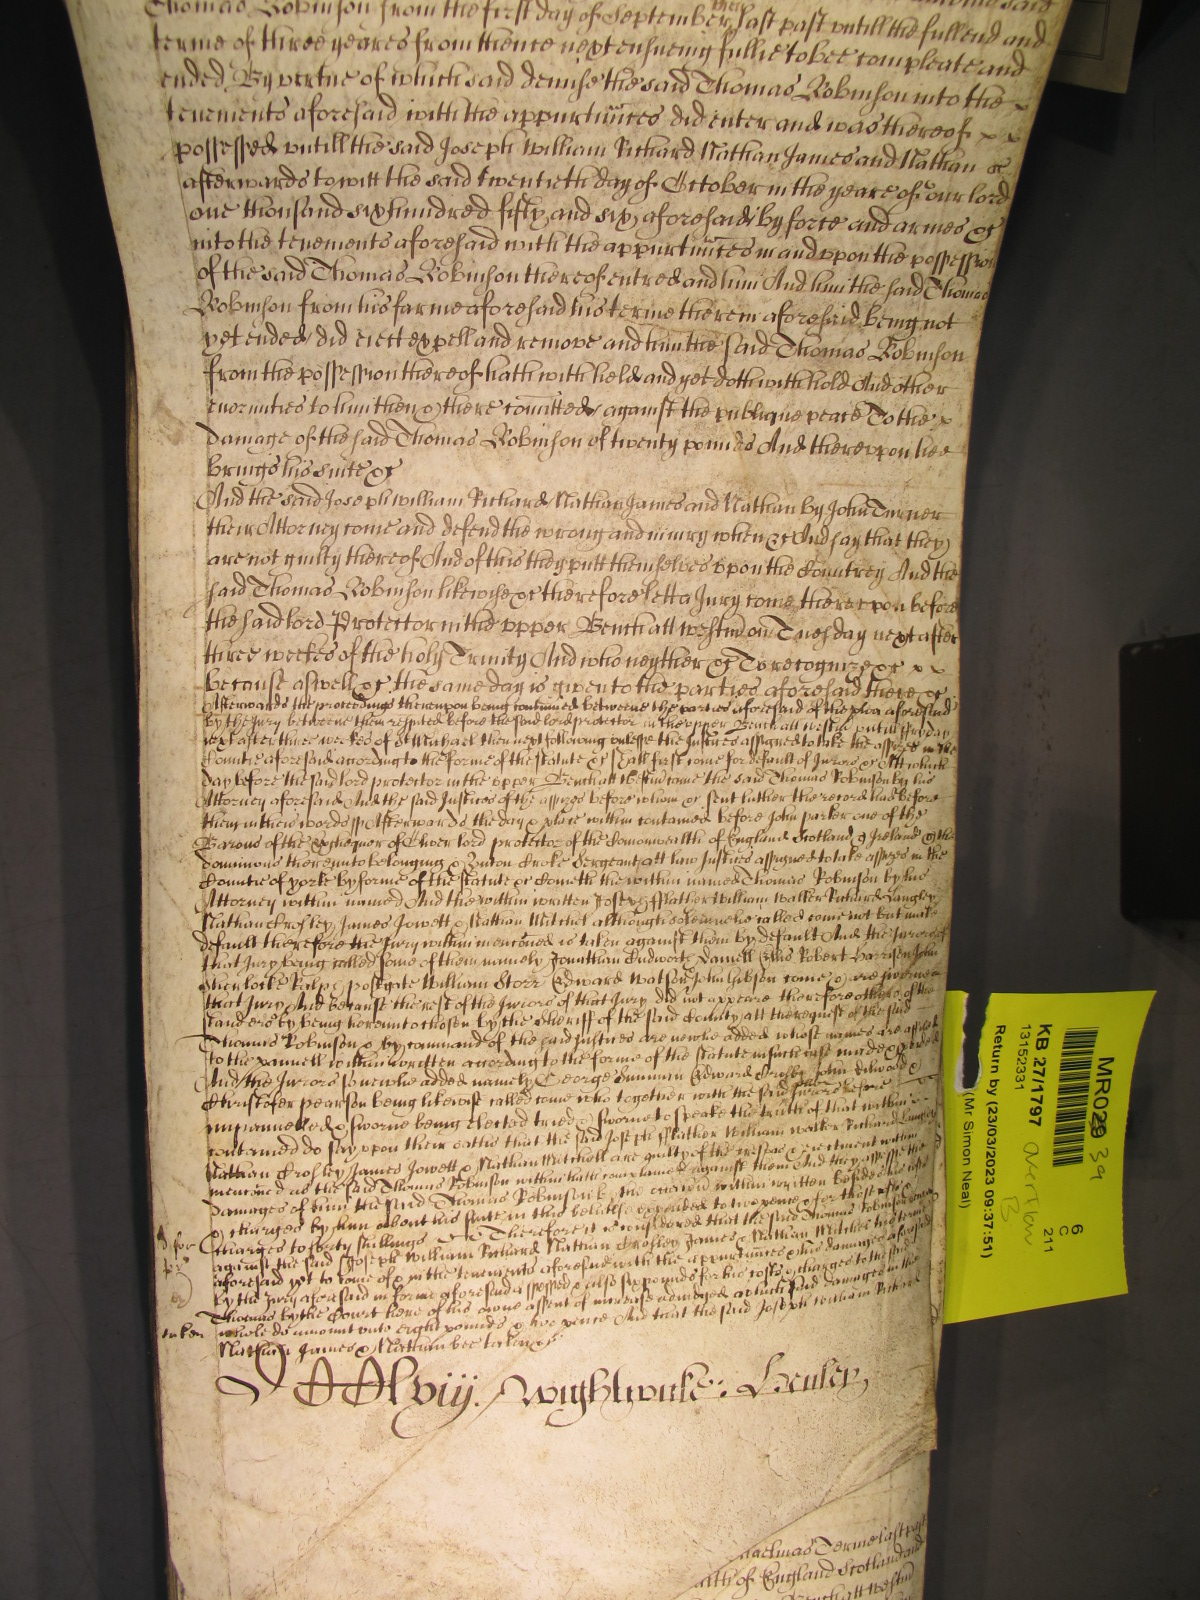 Thomas Robinson from the first day of September then last past untill the full end and
terme of three yeares from thence next ensueing fullie to bee compleate and
ended By vertue of which said demise the said Thomas Robinson into the
tenements aforesaid with the appurtunces did enter and was thereof
possessed untill the said Joseph William Richard Nathan James and Nathan
afterwards to witt the said twentieth day of October in the yeare of our lord
one thousand six hundred fifty and six aforesaid by force and armes &c
into the tenements aforesaid with the appurtunces in and upon the possession
of the said Thomas Robinson thereof entred and him And him the said Thomas
Robinson from his farme aforesaid his terme therein aforesaid being not
yet ended did eiect expell and remove and him the said Thomas Robinson
from the possession thereof hath withheld and yet doth withhold And other
enormities to him then & there comitted against the publique peace To the
damage of the said Thomas Robinson of twenty pounds And thereupon hee
brings his suite &c
And the said Joseph William Richard Nathan James and Nathan by John Turner
their Attorney come and defend the wrong and iniury when &c And say that they
are not guilty thereof And of this they putt themselves upon the Countrey And the
said Thomas Robinson likewise &c therefore lett a Jury come thereupon before
the said lord Protector in the upper Bench att westm on Tuesday next after
three weekes of the holy Trinity And who neyther &c To recognize &c
because aswell &c the same day is given to the parties aforesaid there &c
Afterwards the proceedings thereupon being continued betweene the parties aforesaid of the plea aforesaid
by the Jury betweene them respited before the said lord protector in the upper Bench att westm untill fryday
next after three weekes of St Michael then next following unlesse the Justices assigned to take the assizes in the
Countie aforesaid according to the forme of the statute &c shall first come for default of Jurors &c Att which
day before the said lord protector in the upper Bench att westm come the said Thomas Robinson by his
Attorney aforesaid And the said Justices of the assizes before whom &c sent hither the record had before
them in these words Afterwards the day & place within contained before John parker one of the
Barons of the Exchequer of Oliver lord protector of the Comonwealth of England Scotland & Ireland & the
dominions thereunto belonging & Unton Croke Sergeant att law Justices assigned to take assizes in the
Countie of yorke by forme of the statute &c Cometh the within named Thomas Robinson by his
Attorney within named And the within written Joseph fflather William Walker Richard Langley
Nathan Crosley James Jowett & Nathan Mitchel although solemnelie called come not but make
default therefore the Jury within mencioned is taken against them by default And the Jurors of
that Jury being called some of them namely Jonathan Darnell Ellis Robert Harrison John
Ralph postgate William Storr Edward Watson John Gibson come & are sworne in
that Jury And because the rest of the Jurors of that Jury did not appeare therefore others of the
standers by being hereunto chosen by the Sheriff of the said County att the request of the said
Thomas Robinson & by command of the said Justices are newlie added whose names are
to the pannell within written according to the forme of the statute in such case made & provided
And the Jurors soe newlie added namely George Edward Crosby John
Christofer pearson being likewise called come who together with the said Jurors before
impannelled & sworne being elected tried & sworne to speake the truth of that within
contained do say upon their oathes that the said Joseph fflather William walker Richard Langley
Nathan Crosley James Jowett & Nathan Mitchell are guilty of the trespas & eiectment within
mencioned as the said Thomas Robinson within hath complained against them And they assesse the
damages of him the said Thomas Robinson by the occasion within written besides his costs
& charges by him about his suite in this behalfe expended to two pence & for those costs &
charges to forty shillings Therefore it is considered that the said Thomas Robinson
against the said Joseph William Richard Nathan Crosley James & Nathan Mitchel his terme
aforesaid yet to come of & in the tenements aforesaid with the appurtunces & his damages aforesaid
by the Jury aforesaid in forme aforesaid assessed & alsoe six pounds for his costs & charges to the said
Thomas by the Court here of his owne assent of increase adiudged which said damages in the
whole do amount unto eight pounds & two pence And that the said Joseph William Richard
taken
Nathan James & Nathan bee taken &c
CClviij. Wightwicke: Henley,
Michaelmas Terme last past
of England Scotland and
Bench att westm
MR029 39
KB 27/1797
13152331
Return by (23/03/2023 09:37:51)
(Mr Simon Neal)
6
C
211